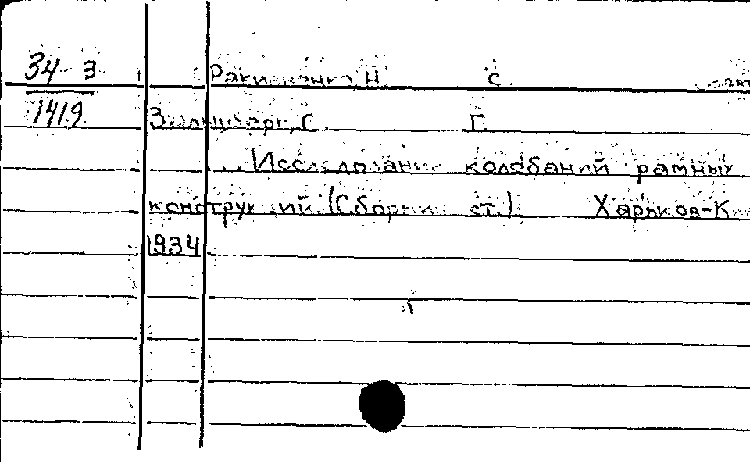 34-3
1419
Н С
Г. Г
Исследование колебаний рамных
конструкций (Сборник ст.) Харьков-К
1934